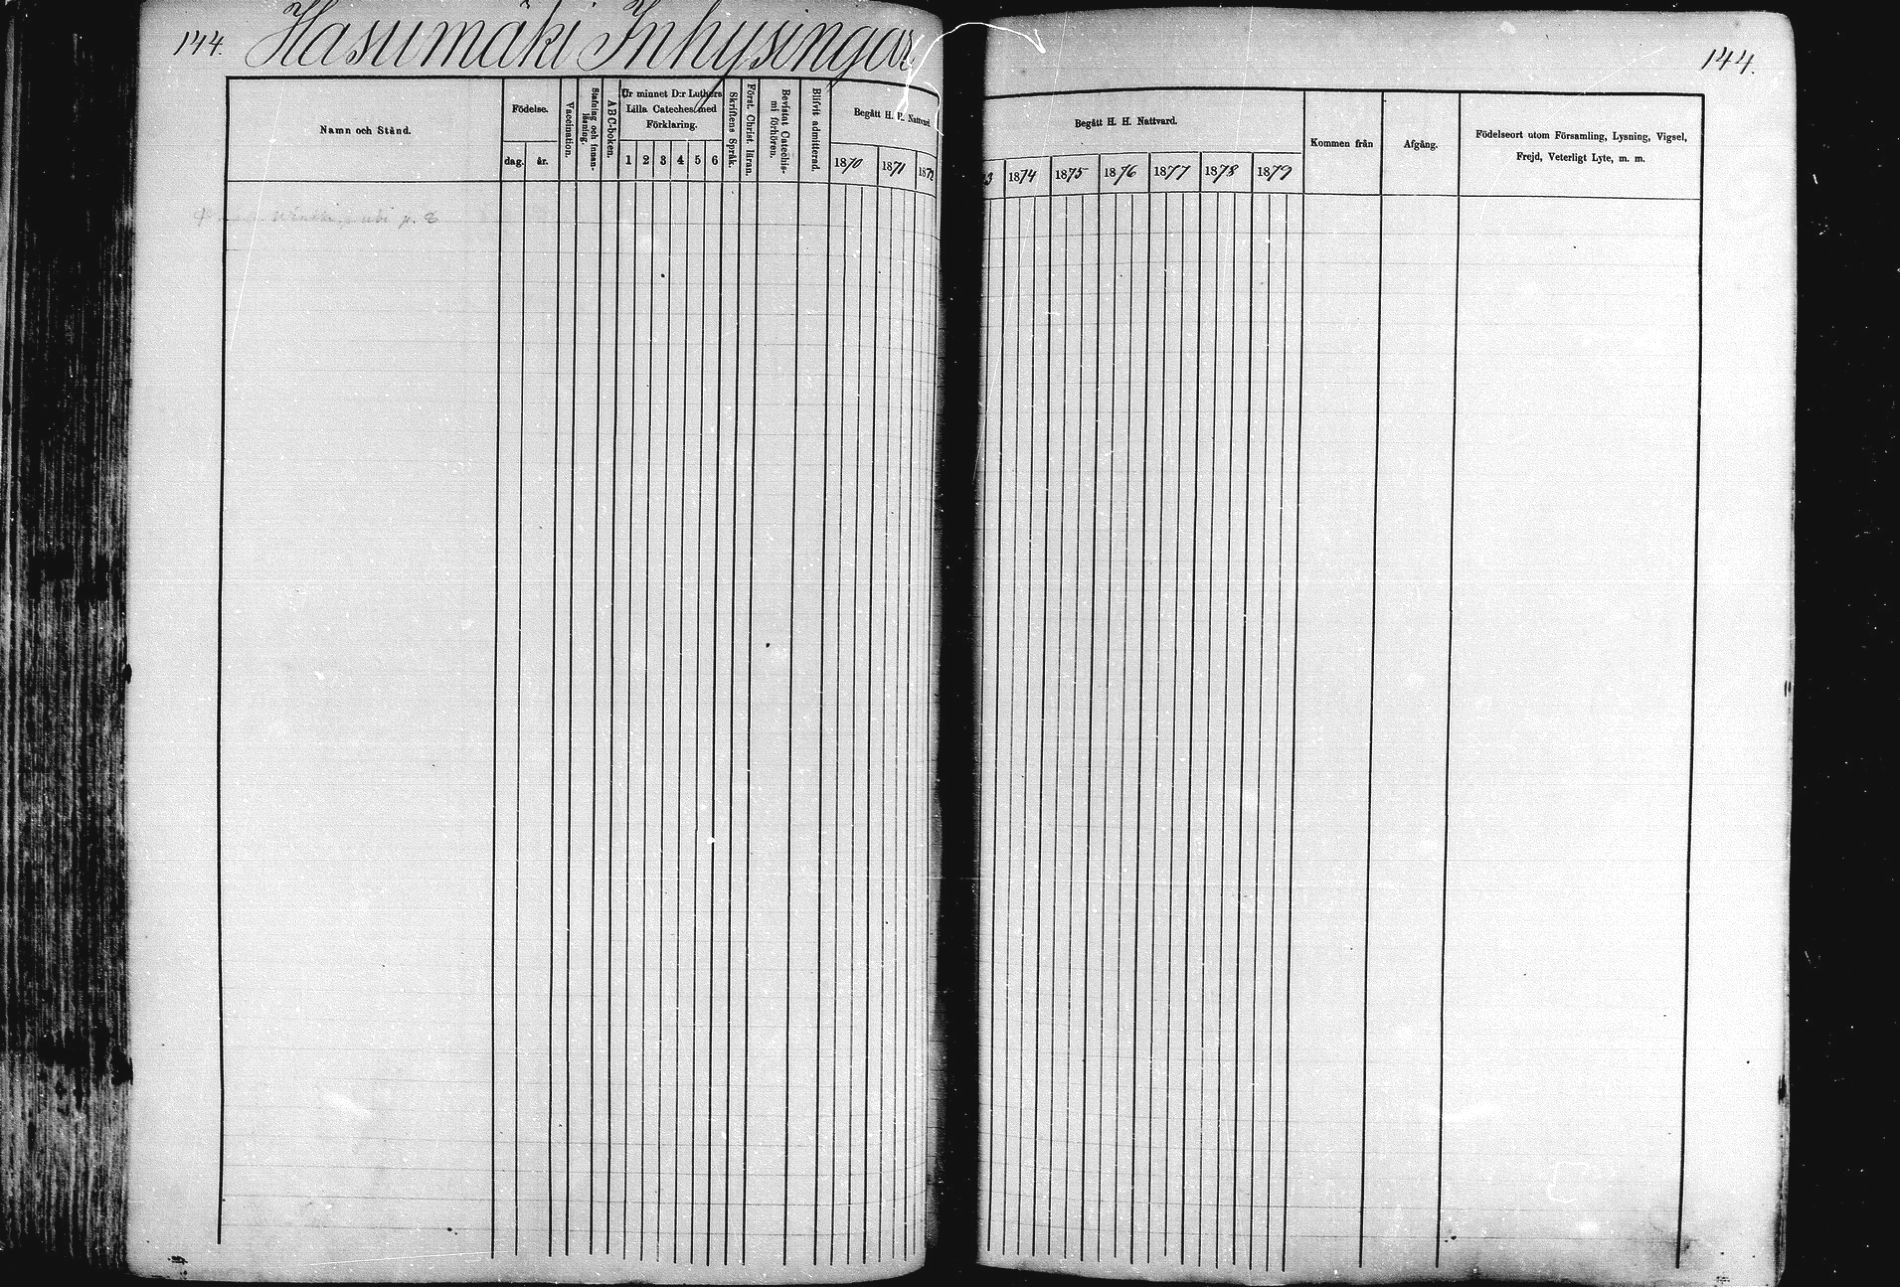 144. Hasumäki Inhysingar
Namn och Stånd.
Födelse.
dag.
år.
Vaccination.
Stafning och innan-
läsning.
ABC-boken.
Ur minnet D:r Luthers
Lilla Cateches med
Förklaring.
1 2 3 4 5 6
Skriftens Språk.
Först. Christ. läran.
Bevistat Catechis-
mi förhören.
Blifvit admitterad.
Begått H. H. Nattvard.
1870 1871 1872
144.
Begått H. H. Nattvard.
73 1874 1875 1876 1877 1878 1879
Kommen från
Afgång.
Födelseort utom Församling, Lysning, Vigsel,
Frejd, Veterligt Lyte, m. m.
p. 8